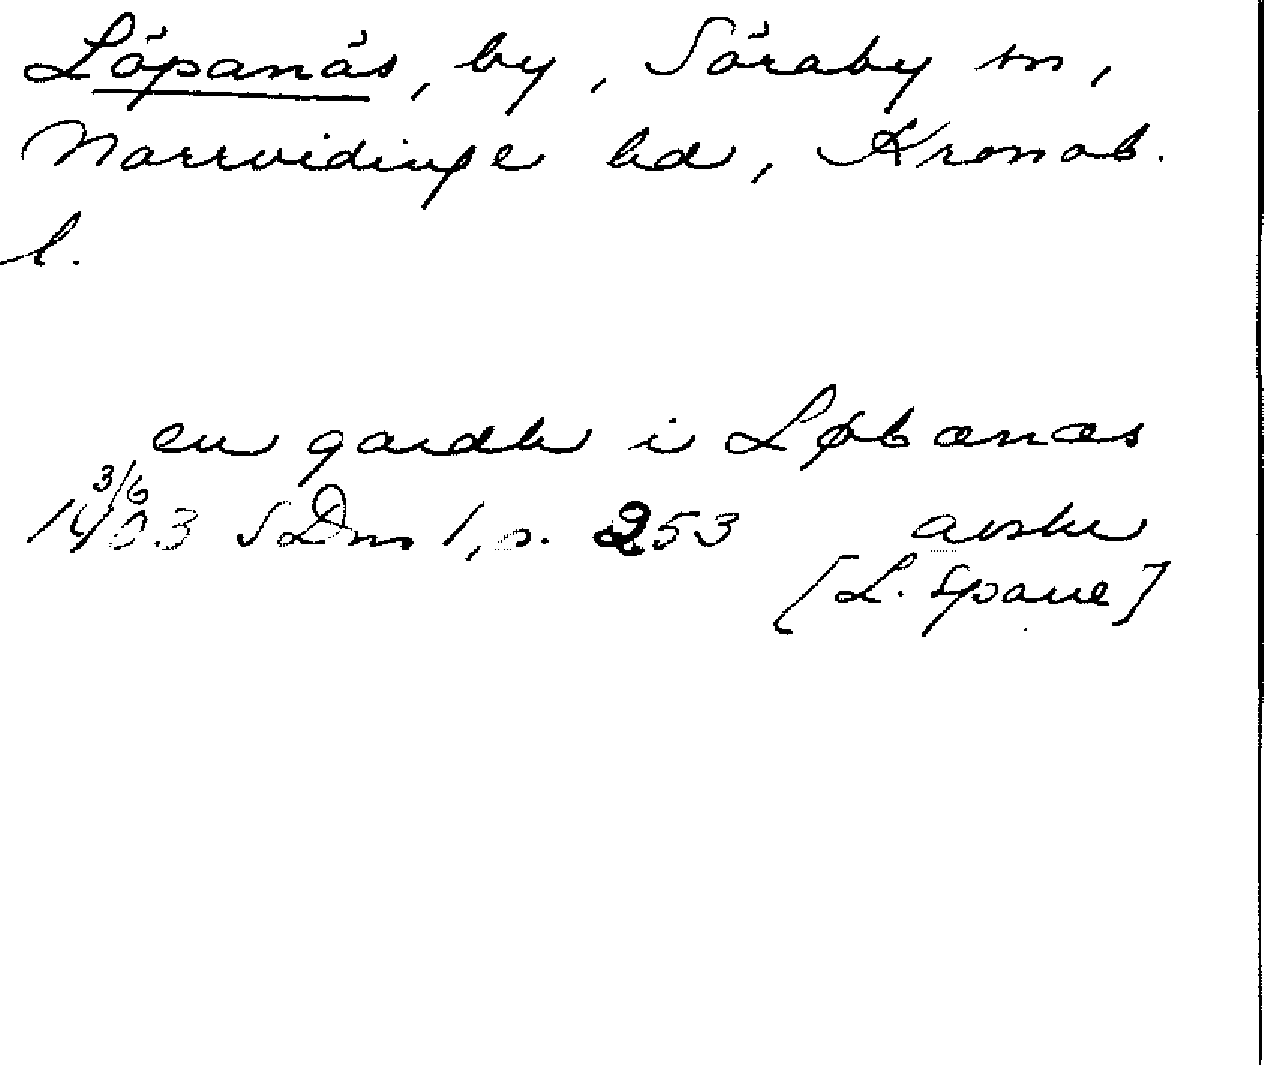 Löpanäs, by, Söraby sn,
Norrvidinge hd, Kronob.
l.
en gardh i Løbænæs
3/6
1403 SDns 1, s. 253 avskr
[L. Sparre]